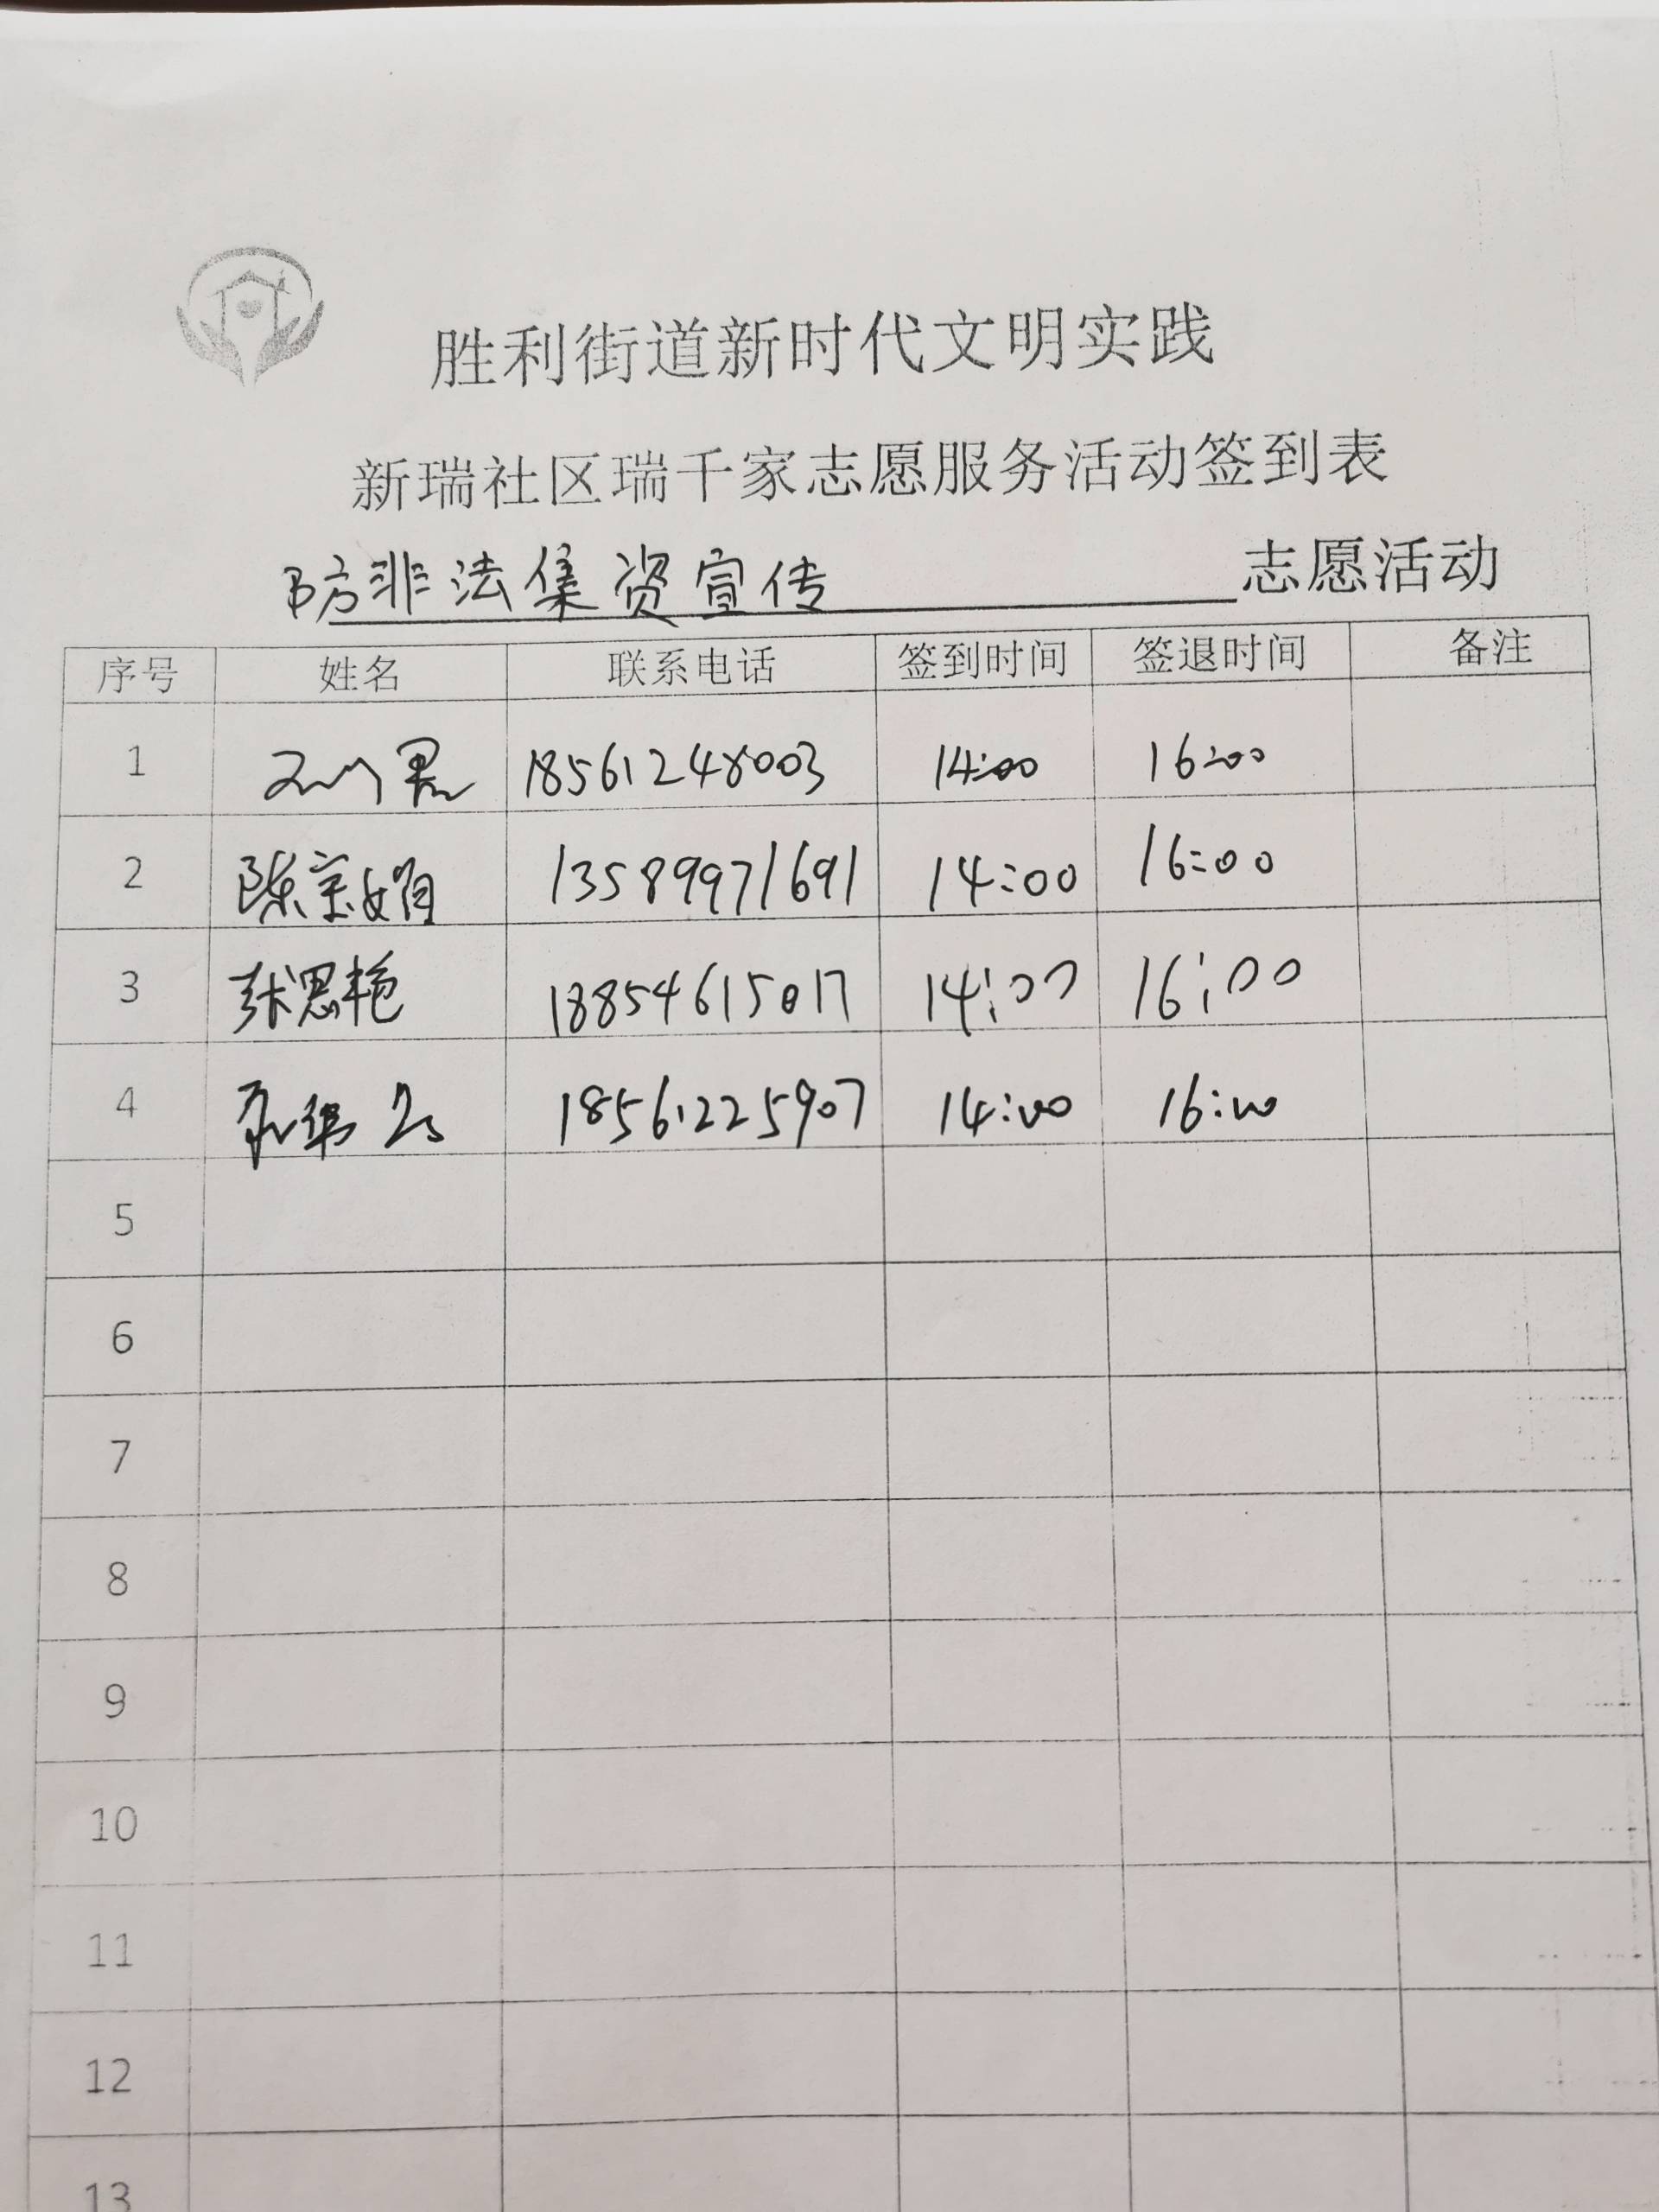 胜利街道新时代文明实践
新瑞社区瑞千家志愿服务活动签到表
防非法集资宣传 志愿活动
序号 姓名 联系电话 签到时间 签退时间 备注
1 18561248003 14:00 16:00
2 陈宗娟 13589971691 14:00 16:00
3 张思艳 18854615017 14:00 16:00
4 18561225907 14:00 16:00
5
6
7
8
9
10
11
12
13